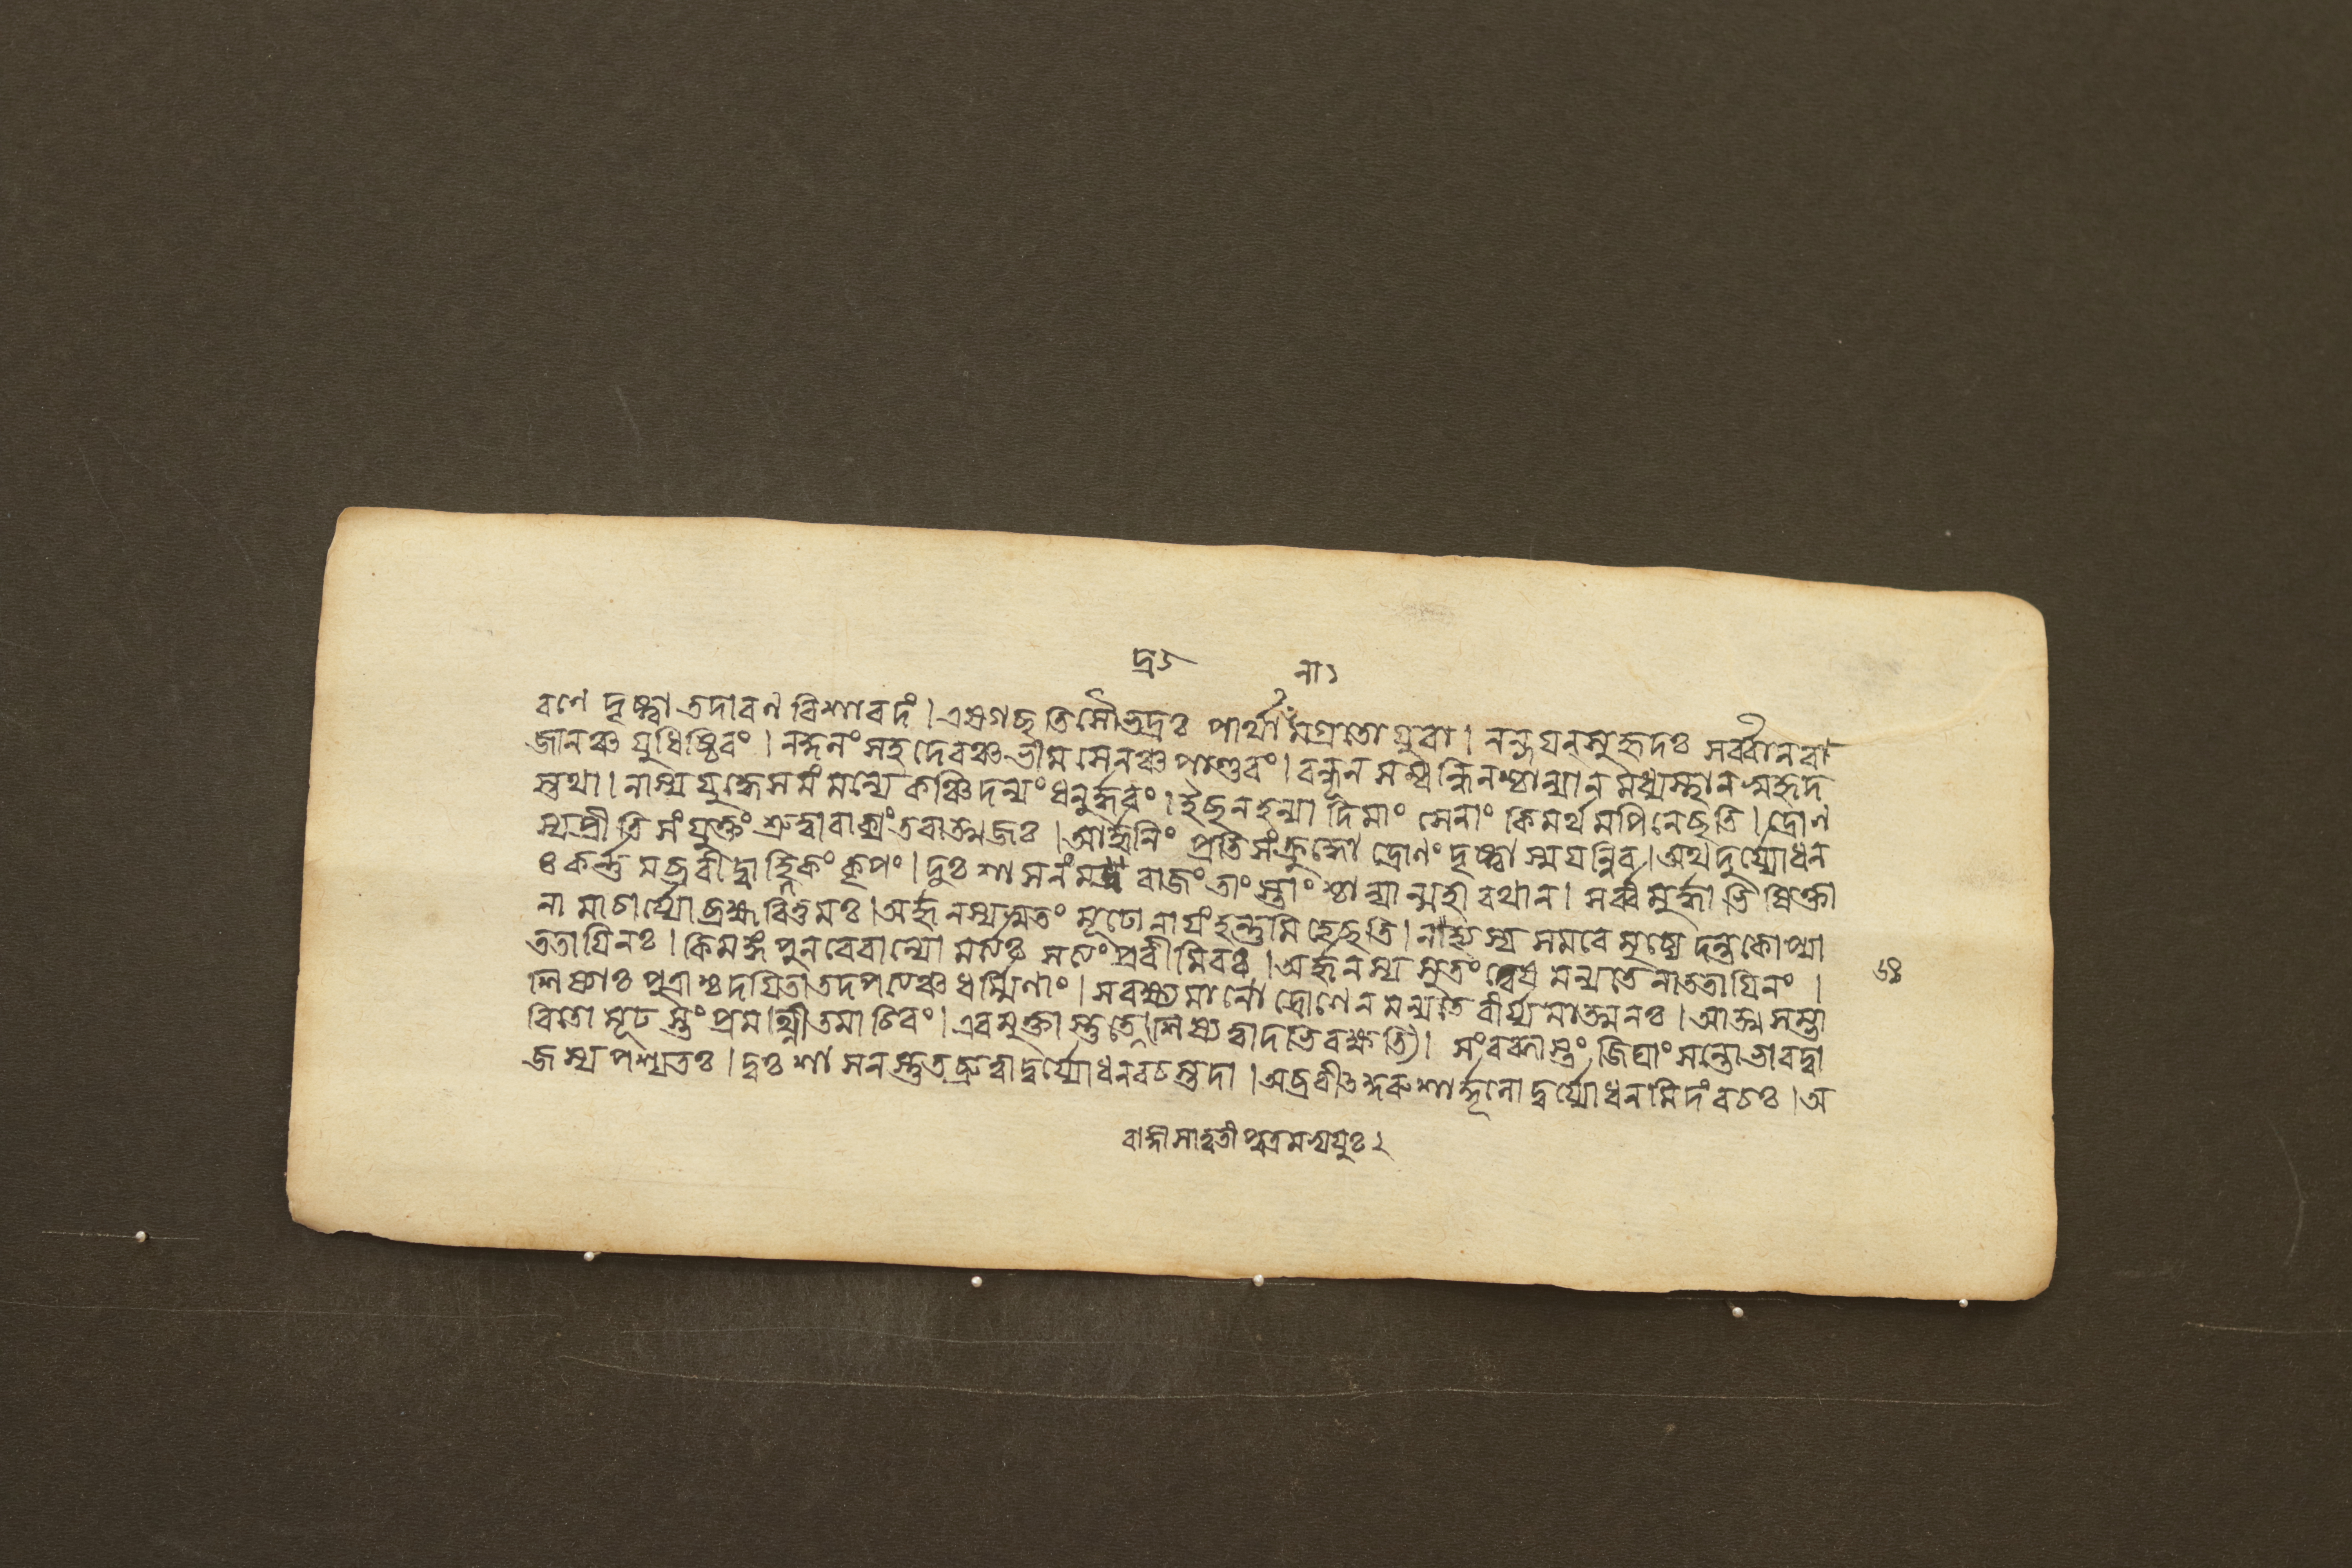 দ্র ১ না ১
রণে দৃষ্ট্বা তদা রণ বিশারদং । এষ গছতি সৌভদ্রঃ পার্থানামগ্রতো যুবা । নন্দয়ন্ সুহৃদঃ সর্ব্বান রা
জানঞ্চ যুধিষ্ঠিরং । নকুলং সহদেবঞ্চ ভীমসেনঞ্চ পাণ্ডবং । বন্ধূন সম্বন্ধিনশ্চান্যান মধ্যস্থান সুহৃদ
স্তথা । নাস্য যুদ্ধে সমং মন্যে কঞ্চিদন্যং ধনুর্দ্ধরং । ইছন হন্যাদিমাং সেনাং কিমর্থমপি নেছতি । দ্রোণ
স্য প্রীতি সংযুক্তং শ্রুত্বা বাক্যং তবাত্মজঃ । আর্জ্জুনিং প্রতি সংক্রুদ্ধো দ্রোণং দৃষ্ট্বা স্ময়ন্নিব । অথ দুর্য্যোধন
ঃ কর্ন্নমব্রবীদ্বাহ্লিকং কৃপং । দুঃশাসনং মদ্ররাজং তাংস্তাংশ্চান্যান্মহারথান । সর্ব্বমূর্দ্ধাভিষিক্তা
নামাচার্য্যো ব্রহ্মবিত্তমঃ । অর্জ্জুনস্য সুতং মূঢো নায়ং হন্তুমিহেছতি । নাহ্যস্য সমরে মুচ্যেদন্তকোপ্যা
ততায়িনঃ । কিমঙ্গ পুনরেবান্যো মর্ত্যঃ সত্যং ব্রবীমি বঃ । অর্জ্জুনস্য সুতং ত্বেষ মন্যতে নাততায়িনং ।
শিষ্যাঃ পুত্রাশ্চ দয়িতা তদপত্যঞ্চ ধর্ম্মিণাং । সংরক্ষ্যমানো দ্রোণেন মন্যতে বীর্য্যমাত্মনঃ । আত্মসম্ভা
বিতো মূঢস্তং প্রমথ্নীত মাচিরং । এবমুক্তাস্তু তে শিষ্যত্বাদভিরক্ষতি । সংরব্ধাস্তং জিঘাংসন্তো ভারদ্বা
জস্য পশ্যতঃ । দুঃশাসনস্তু তছ্রুত্বা দুর্য্যোধনবচস্তদা । অব্রবীত্কুরুশার্দ্দূলো দুর্য্যোধনমিদং বচঃ । অ
রাজ্ঞা সাত্বতী পুত্রমভ্যযুঃ ২
৬৪